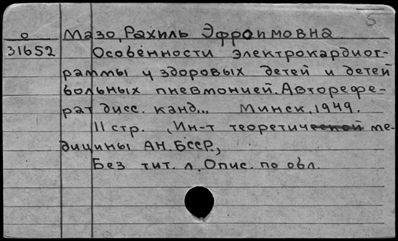 5
о Мазо, Рахиль Эфраимовна.
31652 Особенности электрокардиог-
раммы у здоровых детей и детей
больных пневмонией. Авторефе-
рат дисс. канд... Минск, 1949.
11 стр. (Ин-т теоретической ме-
дицины АН БССР,
Без тит. л. Опис. по обл.